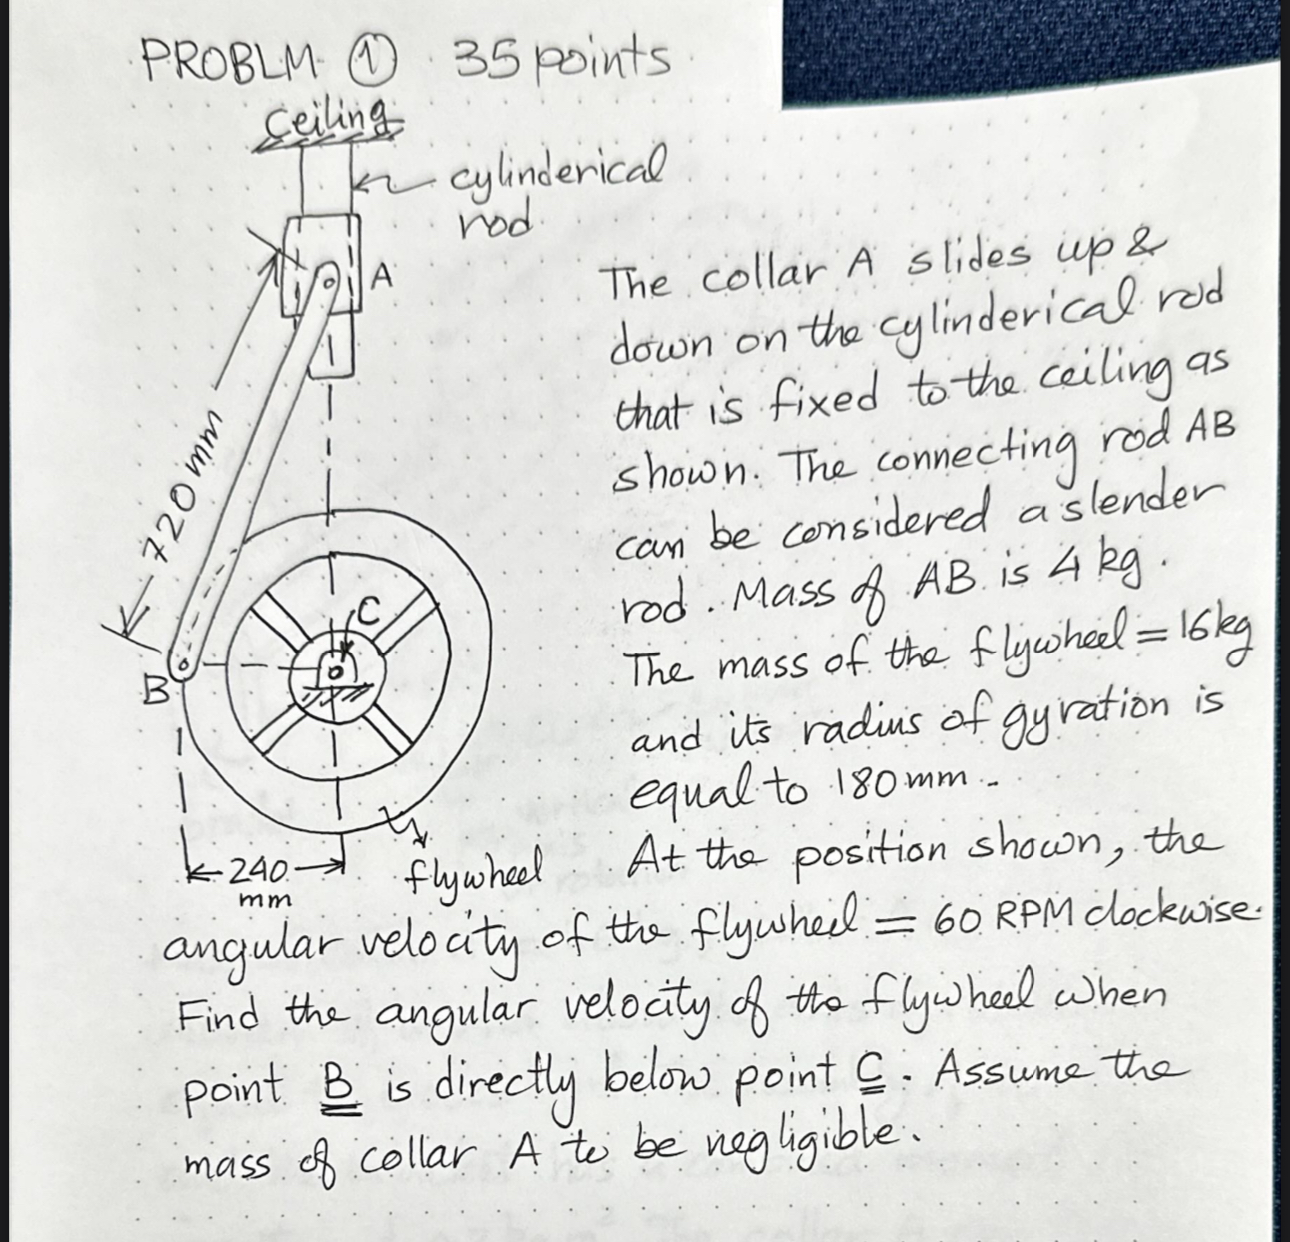 PROBLM ① 35 points
ceiling
cylinderical
rod
A
The collar A slides up &
down on the cylinderical rod
that is fixed to the ceiling as
shown. The connecting rod AB
can be considered a slender
rod. Mass of AB is 4 kg.
The mass of the flywheel = 16kg
and its radius of gyration is
equal to 180 mm.
720mm
C
B
240
mm
flywheel
At the position shown, the
angular velocity of the flywheel = 60 RPM clockwise.
Find the angular velocity of the flywheel when
point B is directly below point C. Assume the
mass of collar A to be negligible.